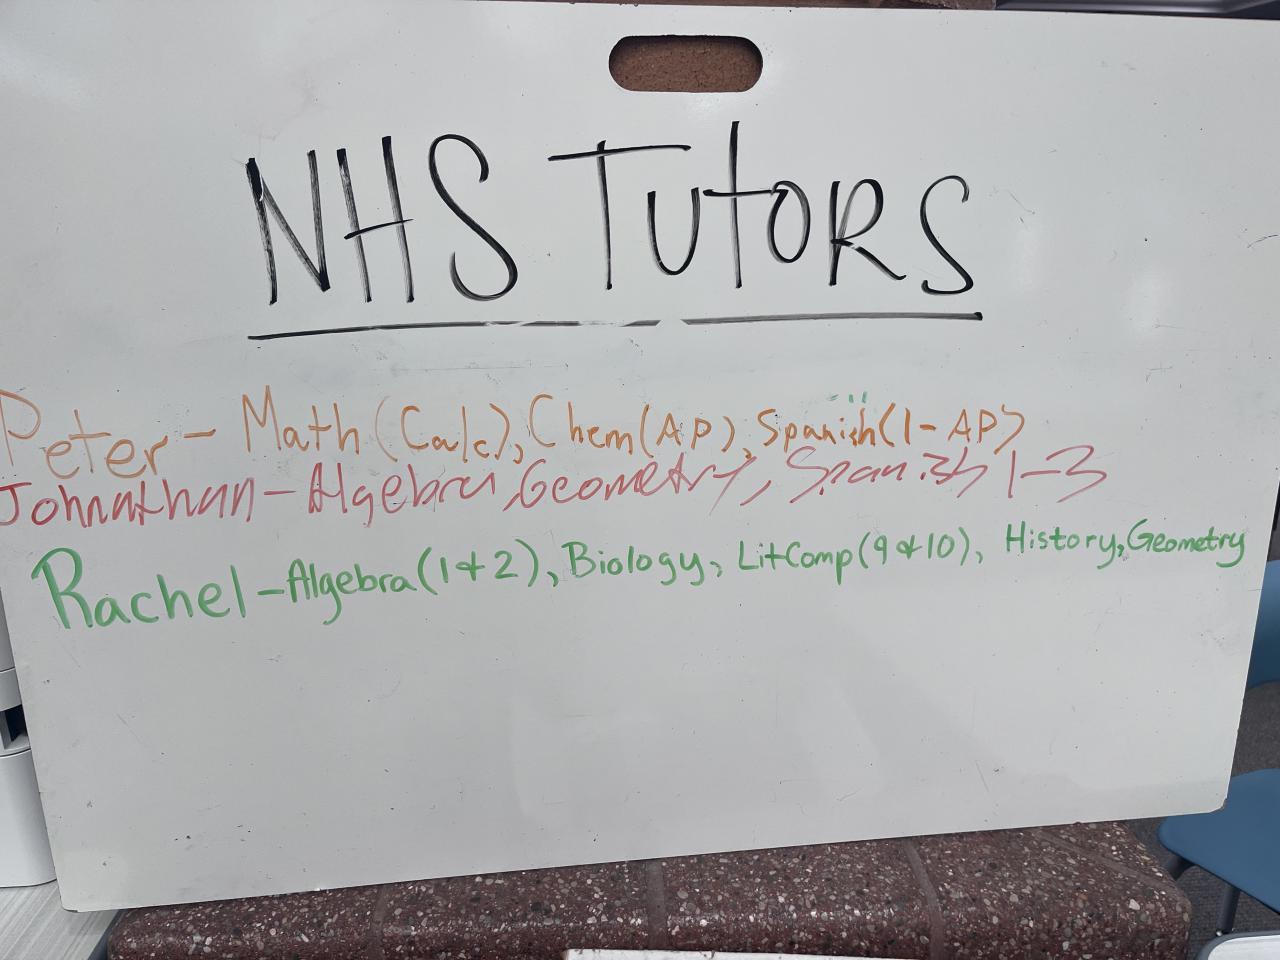 NHS Tutors
Peter - Math (Calc), Chem (AP), Spanish (1 - AP)
Johnathan - Algebra, Geometry, Spanish 1-3
Rachel - Algebra (1 & 2), Biology, LitComp (9 & 10), History, Geometry